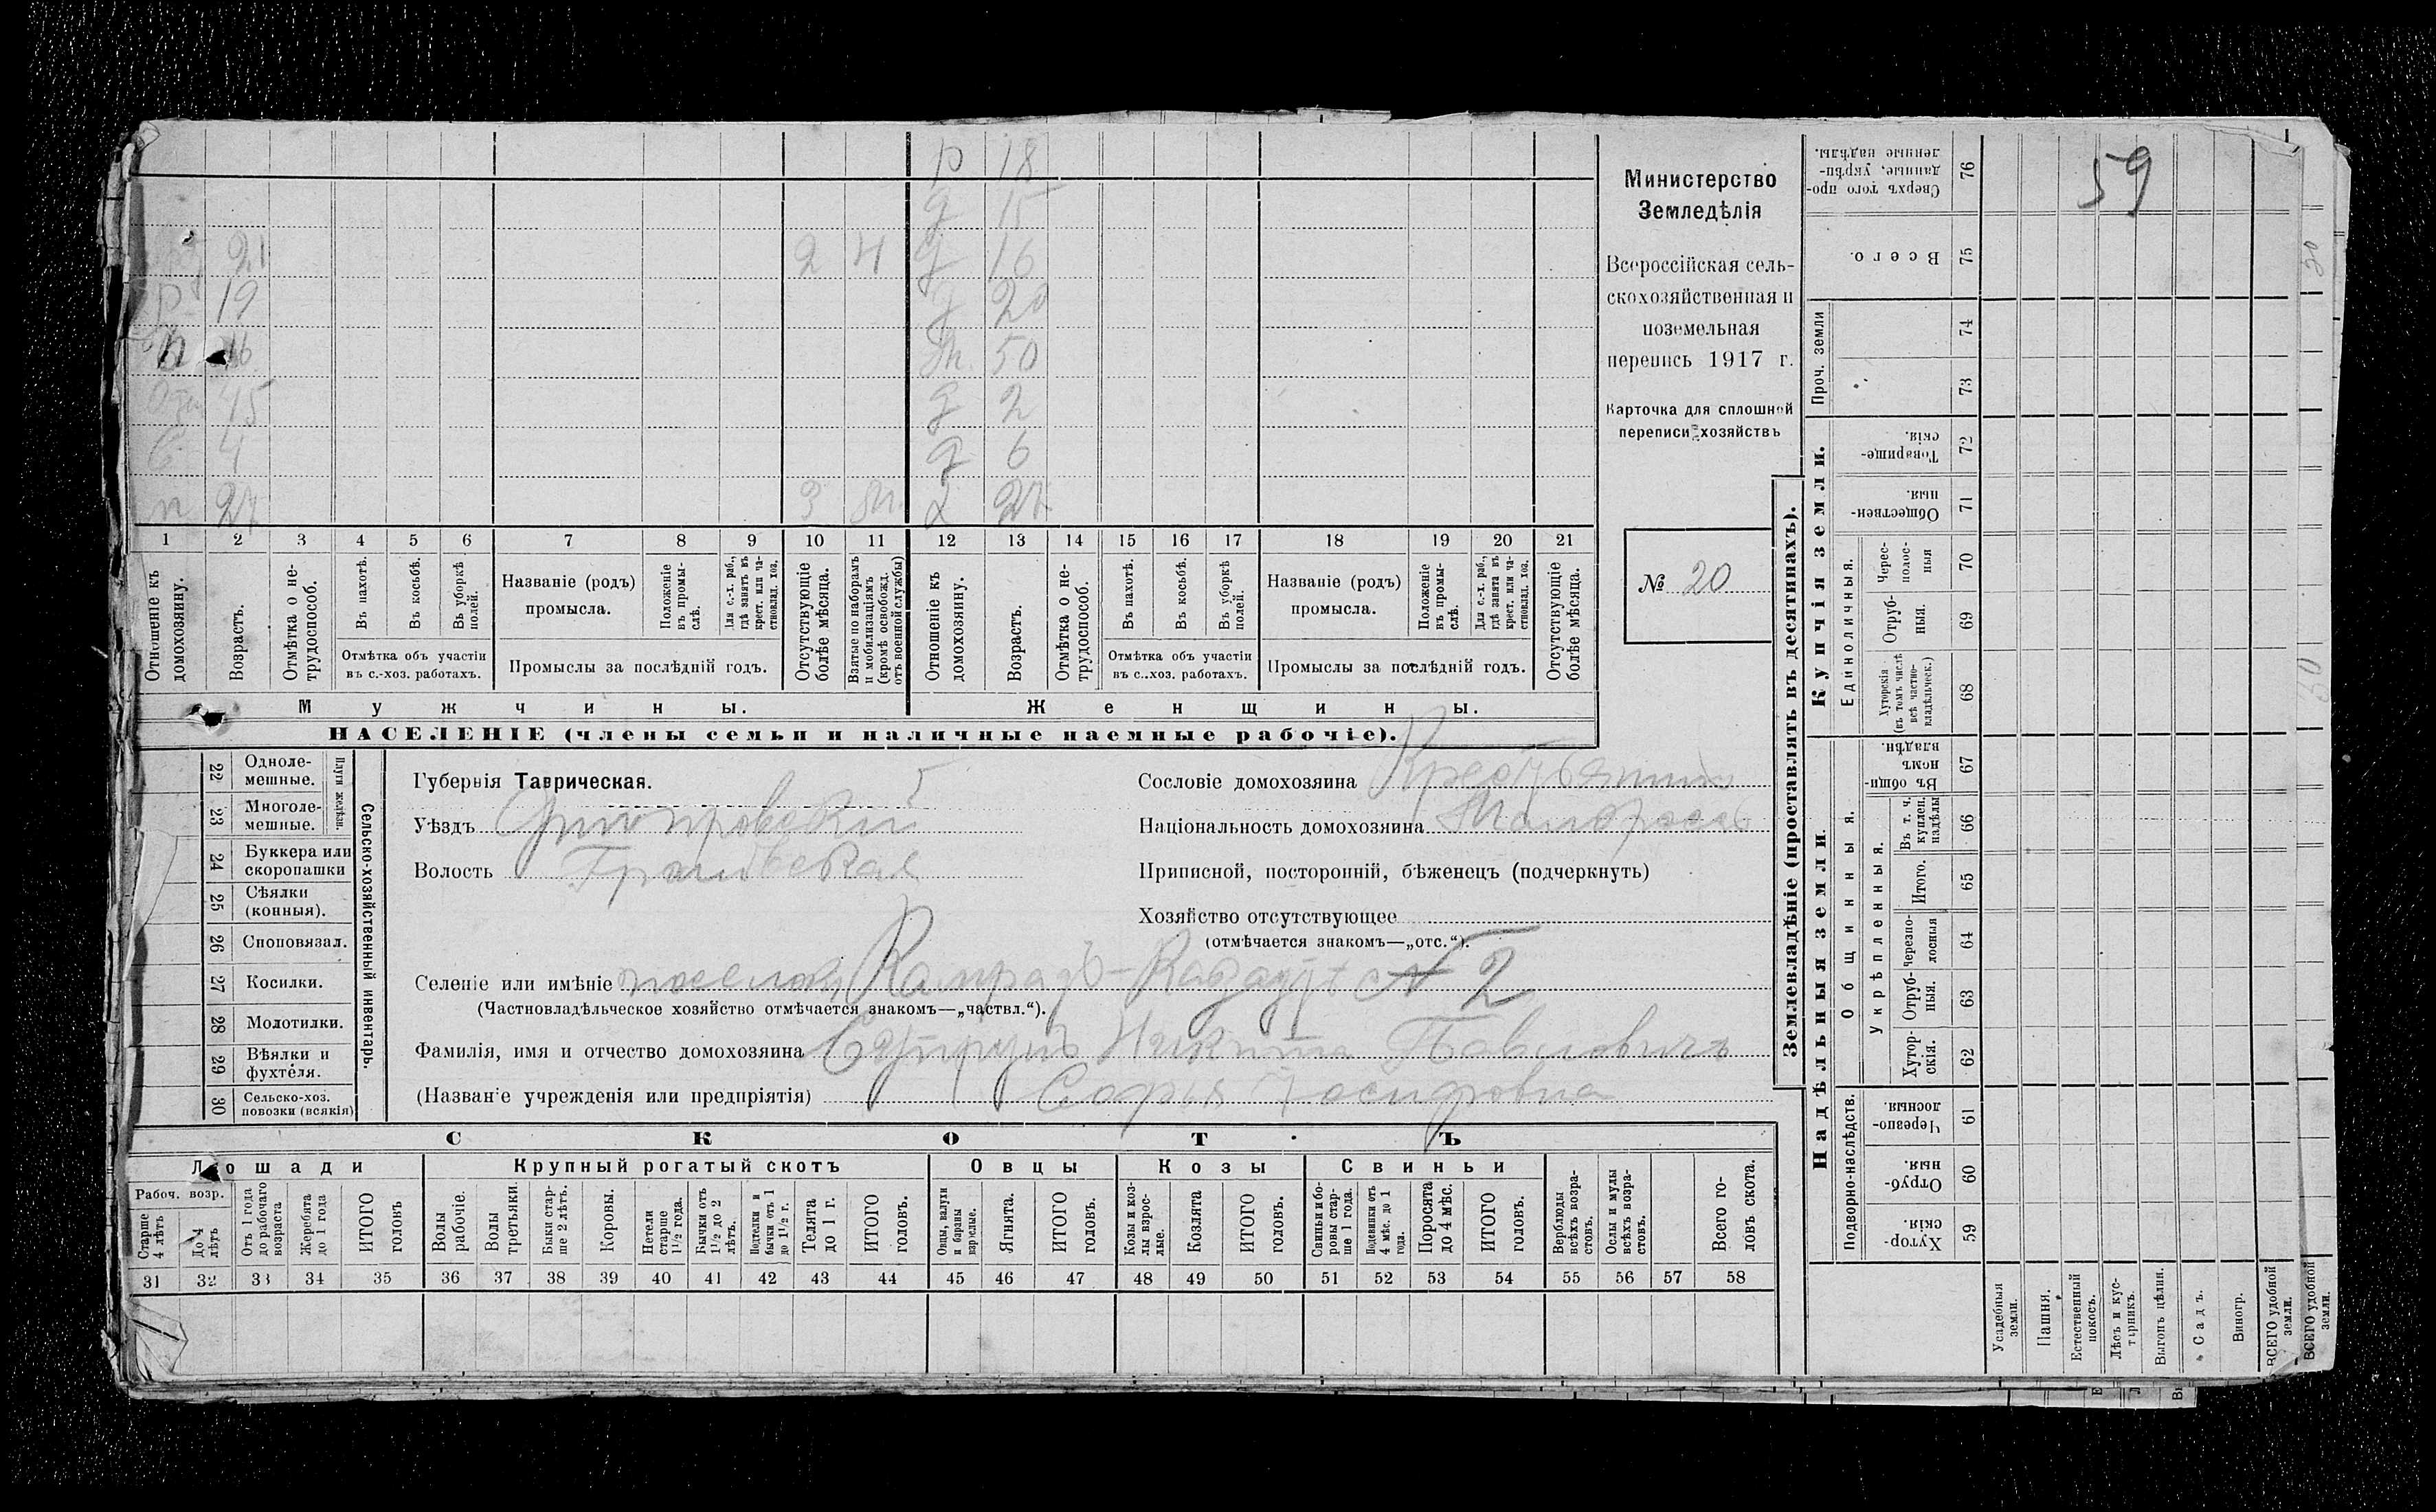 р 18
д 15
21 2 4 д 16
р 19 д 20
50
45 д 2
4 д 6
27 3 27
1 2 3 4 5 6 7 8 9 10 11 12 13 14 15 16 17 18 19 20 21
Отношеніе къ домохозяину.
Возрастъ.
Отмѣтка о нетрудоспособ.
Въ пахотѣ.
Въ косьбѣ.
Въ уборкѣ полей.
Отмѣтка объ участіи
въ с.-хоз. работахъ.
Названіе (родъ)
промысла.
Положеніе въ промыслѣ.
Для с.-х. раб., гдѣ занятъ въ крест. или частновлад. хоз.
Промыслы за послѣдній годъ.
Отсутствующіе болѣе мѣсяца.
Взятые по наборамъ и мобилизаціямъ (кромѣ освобожд. отъ военной службы)
Отношеніе къ домохозяину.
Возрастъ.
Отмѣтка о нетрудоспособ.
Въ пахотѣ.
Въ косьбѣ.
Въ уборкѣ полей.
Отмѣтка объ участіи
въ с..хоз. работахъ.
Названіе (родъ)
промысла.
Положеніе въ промыслѣ.
Для с.-х. раб., гдѣ занята въ крест. или частновлад. хоз.
Промыслы за послѣдній годъ.
Отсутствующіе болѣе мѣсяца.
Мужчины. Женщины.
НАСЕЛЕНІЕ (члены семьи и наличные наемные рабочіе).
Министерство
Земледѣлія
Всероссійская сель-
скохозяйственная и
поземельная
перепись 1917 г.
Карточка для сплошной
переписи хозяйствъ
№ 20
22 Одноле-
мешные.
23 Многоле-
мешные.
Плуги желѣзн.
24 Буккера или
скоропашки
25 Сѣялки
(конныя).
26 Сноповязал.
27 Косилки.
28 Молотилки.
29 Вѣялки и
фухтеля.
30 Сельско-хоз.
повозки (всякія)
Сельско-хозяйственный инвентарь.
Губернія Таврическая. 5
Уѣздъ
Волость
Сословіе домохозяина Крестьянинъ
Національность домохозяина
Приписной, посторонній, бѣженецъ (подчеркнуть)
Хозяйство отсутствующее
(отмѣчается знакомъ—„отс.“).
Селеніе или имѣніе поселокъ № 2
(Частновладѣльческое хозяйство отмѣчается знакомъ—„частвл.“).
Фамилія, имя и отчество домохозяина Никита Павловичъ
(Названіе учрежденія или предпріятія) Софья Іосифовна
СКОТЪ
Лошади Крупный рогатый скотъ Овцы Козы Свиньи
Рабоч. возр.
Старше 4 лѣтъ
До 4 лѣтъ
Отъ 1 года до рабочаго возраста
Жеребята до 1 года
ИТОГО головъ
Волы рабочіе.
Волы третьяки.
Быки старше 2 лѣтъ.
Коровы.
Нетели старше 1½ года.
Бычки отъ 1½ до 2 лѣтъ.
Подтелки и бычки отъ 1 до 1½ г.
Телята до 1 г.
ИТОГО головъ.
Овцы, валухи и бараны взрослые.
Ягнята.
ИТОГО головъ.
Козы и козлы взрослые.
Козлята
ИТОГО головъ.
Свиньи и боровы старше 1 года.
Подсвинки отъ 4 мѣс. до 1 года.
Поросята до 4 мѣс.
ИТОГО головъ.
Верблюды всѣхъ возрастовъ.
Ослы и мулы всѣхъ возрастовъ.
Всего головъ скота.
31 32 33 34 35 36 37 38 39 40 41 42 43 44 45 46 47 48 49 50 51 52 53 54 55 56 57 58
Землевладѣніе (проставлять въ десятинахъ).
Надѣльныя земли. Купчія земли. Проч. земли
Подворно-наслѣдств. Общинныя. Единоличныя.
Укрѣпленныя.
Хуторскія. 59
Отрубныя. 60
Черезполосныя. 61
Хуторскія. 62
Отрубныя. 63
Черезполосныя 64
Итого. 65
Въ т. ч. куплен. надѣлы 66
Въ общинномъ владѣн. 67
Хуторскія (въ томъ числѣ всѣ частновладѣльческ.) 68
Отрубныя. 69
Чересполосныя 70
Общественныя. 71
Товарищескія. 72
73
74
Всего. 75
Сверхъ того проданные, укрѣпленные надѣлы. 76
59
20
Усадебныя земли.
Пашня.
Естественный покосъ.
Лѣсъ и кустарникъ.
Выгонъ цѣлин.
Садъ.
Виногр.
ВСЕГО удобной земли.
ВСЕГО удобной земли.